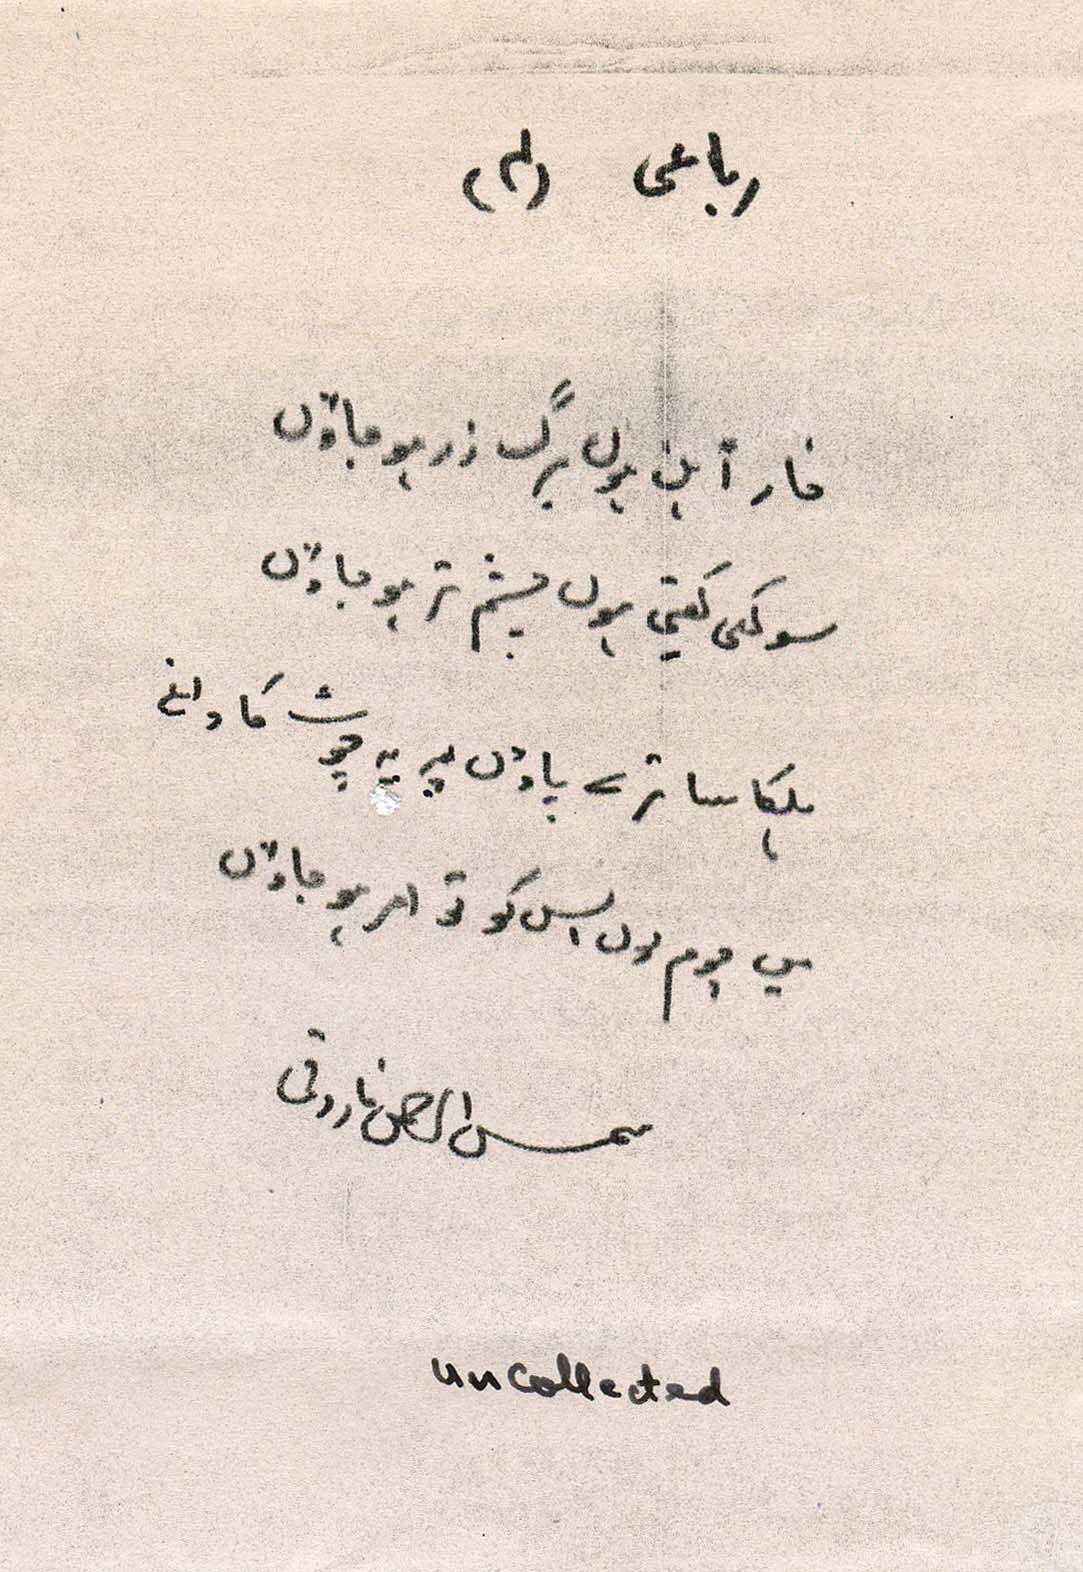 رباعی (۴)
خار آہن ہوں برگ زر ہو جاؤں
سوکھی کھیتی ہوں چشم تر ہو جاؤں
ہلکا سا ترے پاؤں پہ یہ چوٹ کا داغ
میں چوم لوں اس کو تو امر ہو جاؤں
شمس الرحمن فاروقی
uncollected